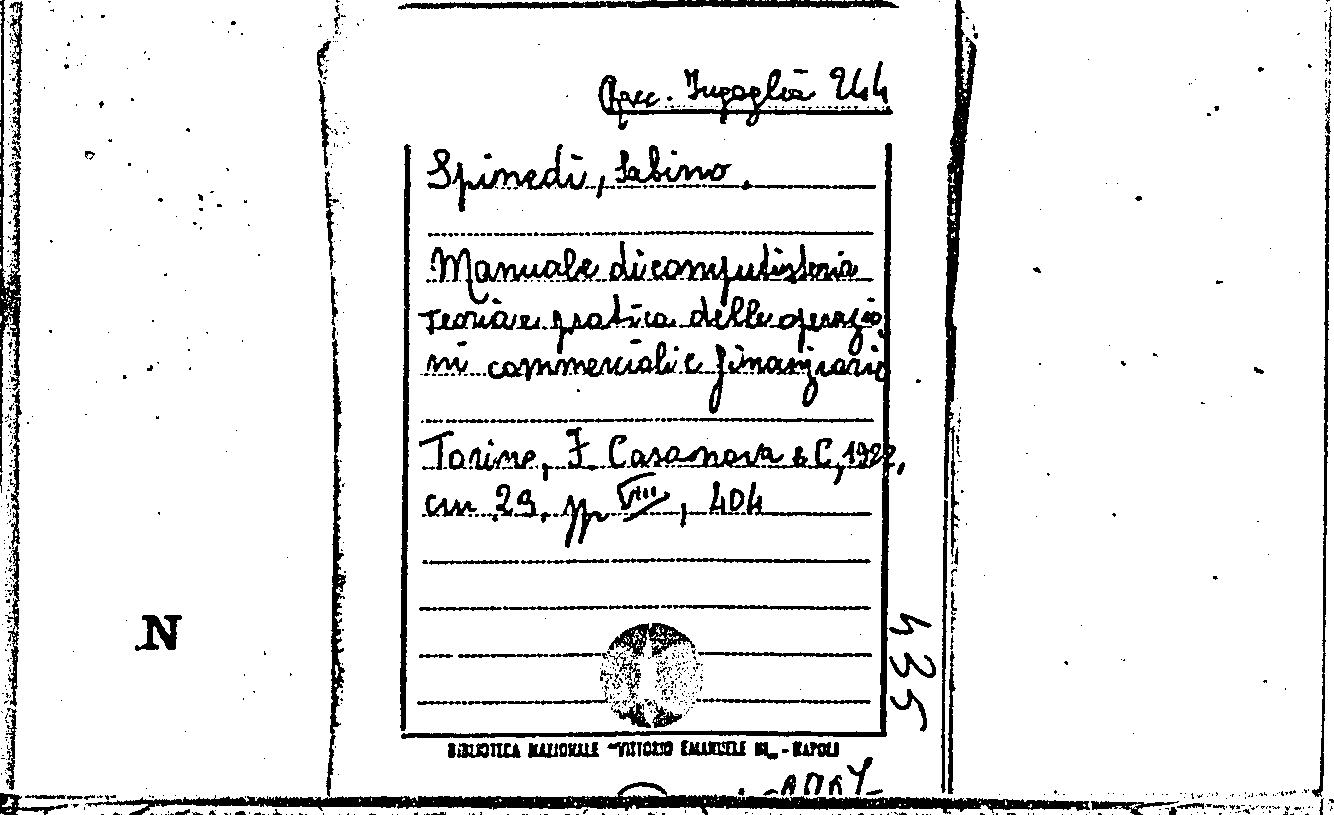 Racc. Ingoglia 244
Spinedi, Sabino.
Manuale di computisteria
Teoria e pratica delle operazio
ni commerciali e finanziarie
Torino, F. Casanova & C, 1922,
cm 23. pp VIII, 404
N
435
BIBLIOTECA NAZIONALE "VITTORIO EMANUELE III„ - NAPOLI